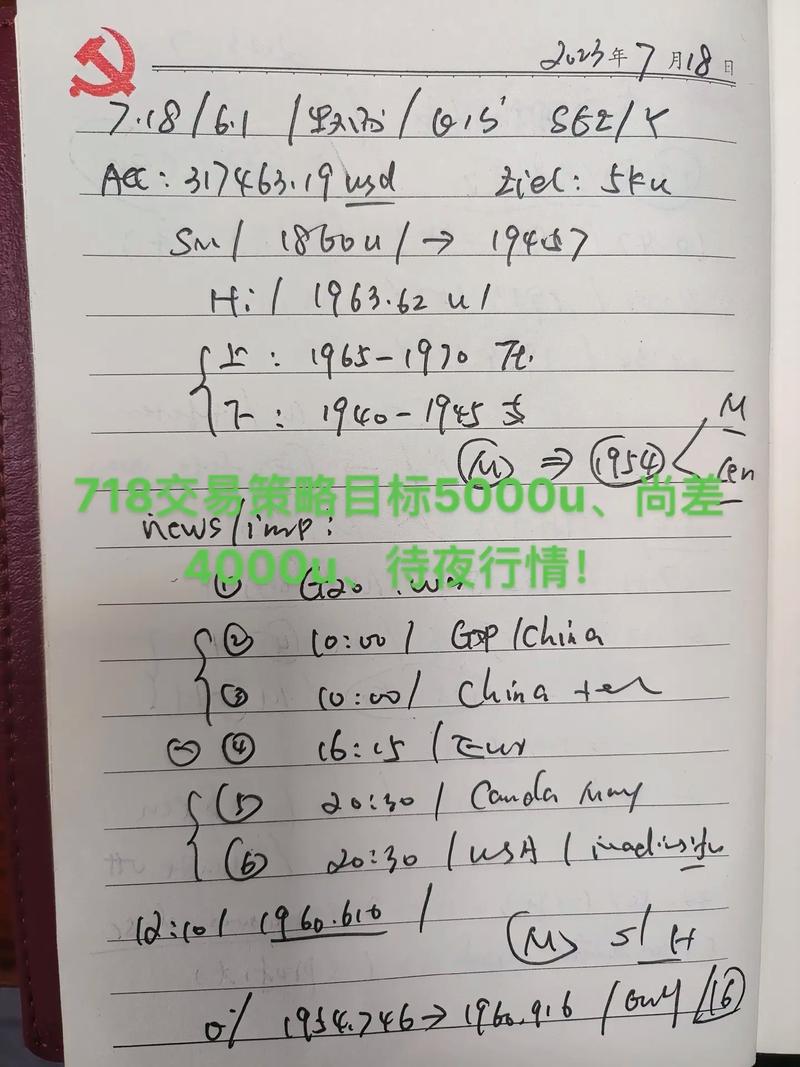 2023年7月18日
7.18/6.1/
Acc: 317463.19 usd Ziel: 5ku
Sm/ 1860u/→ 19457
Hi/ 1963.62 u/
上: 1965-1970
下: 1940-1945
M ⇒ 1954 < M
718交易策略目标5000u、尚差
news/imp:
4000u、待夜行情!
① G20
② 10:00/ GDP/China
③ 10:00/ China
④ 16:15/Eur
⑤ 20:30/ Canda
⑥ 20:30/USA/
12:10/ 1960.616/
M s/H
0/ 1954.746→1960.916/ /16